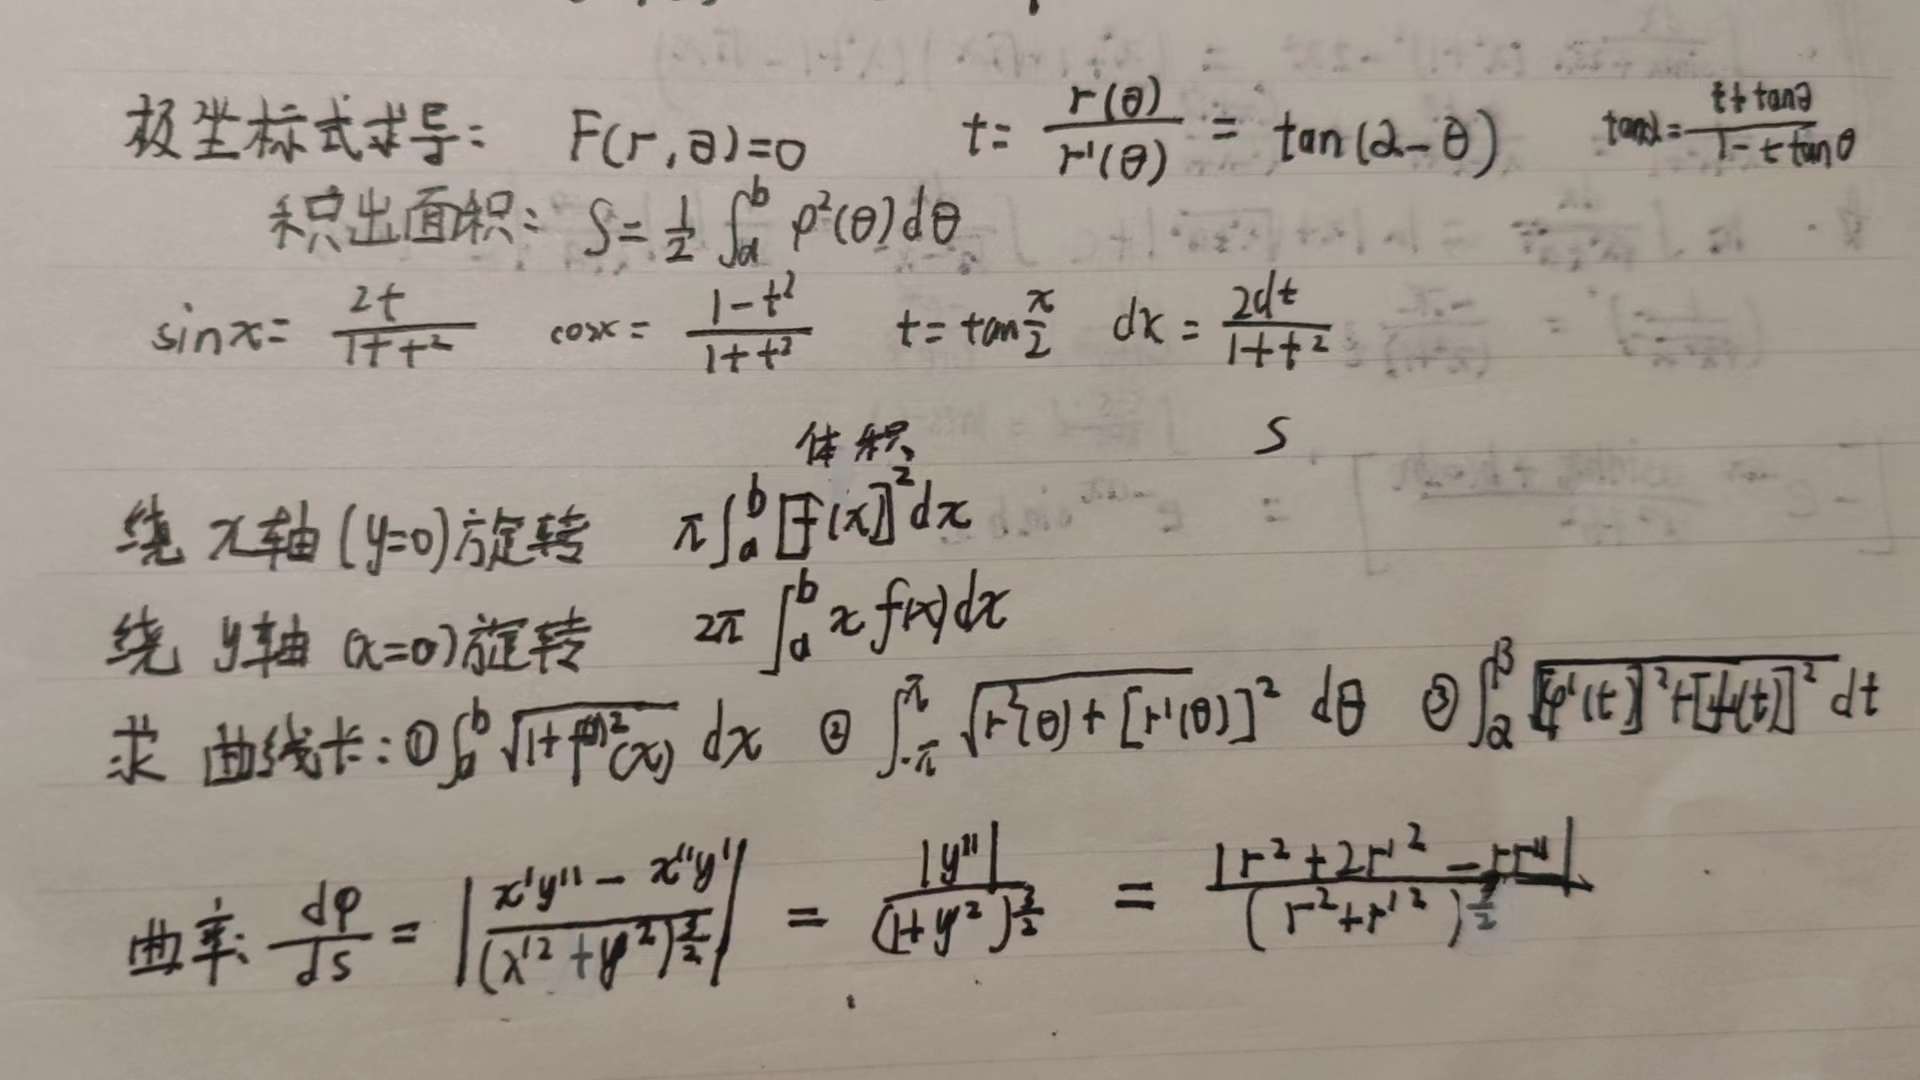 极坐标式求导: F(r,θ)=0 t= r(θ)/r'(θ) = tan(α-θ) tanα= (t+tanθ)/(1-t tanθ)
积出面积: S= 1/2 ∫_a^b ρ²(θ)dθ
sinx= 2t/(1+t²) cosx= (1-t²)/(1+t²) t=tan x/2 dx= 2dt/(1+t²)
体积 S
绕x轴(y=0)旋转 π∫_a^b [f(x)]²dx
绕y轴(x=0)旋转 2π∫_a^b x f(x)dx
求曲线长: ① √(1+f'²(x)) dx ② ∫_{-π}^{π} √(r²(θ)+[r'(θ)]²) dθ ③ ∫_α^β √([φ'(t)]²+[ψ'(t)]²) dt
曲率: dφ/ds = |(x'y''-x''y')/(x'²+y'²)^{3/2}| = |y''|/(1+y'²)^{3/2} = |r²+2r'²-rr''|/(r²+r'²)^{3/2}